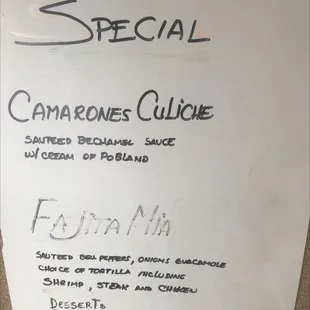 SPECIAL
CAMARONES CULICHE
SAUTEED BECHAMEL SAUCE
W/ CREAM OF POBLANO
FAJITA MIA
SAUTEED BELL PEPPERS, ONIONS GUACAMOLE
CHOICE OF TORTILLA INCLUDING
SHRIMP, STEAK AND CHICKEN
DESSERTS